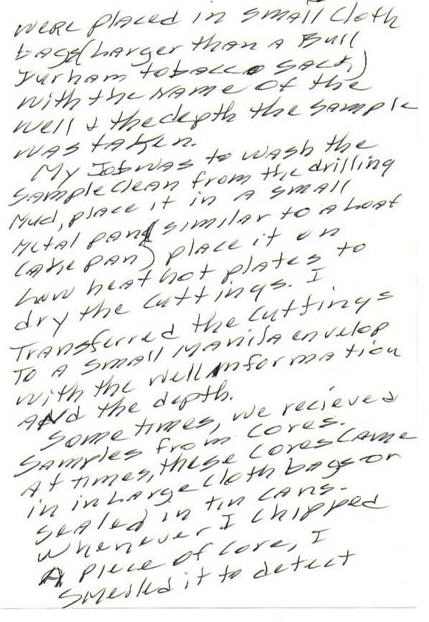 were placed in small cloth
bags (Larger than a Bull
Durham tobacco sack)
with the name of the
well & the depth the sample
was taken.
My Job was to wash the
sample clean from the drilling
mud, place it in a small
metal pan (similar to a Loaf
cake pan) place it on
low heat hot plates to
dry the cuttings. I
Transferred the cuttings
To a small Manila envelop
with the well information
and the depth.
Sometimes, we recieved
samples from cores.
At times, these cores came
in in Large cloth bags or
sealed in tin cans.
Whenever I chipped
A piece of core, I
smelled it to detect